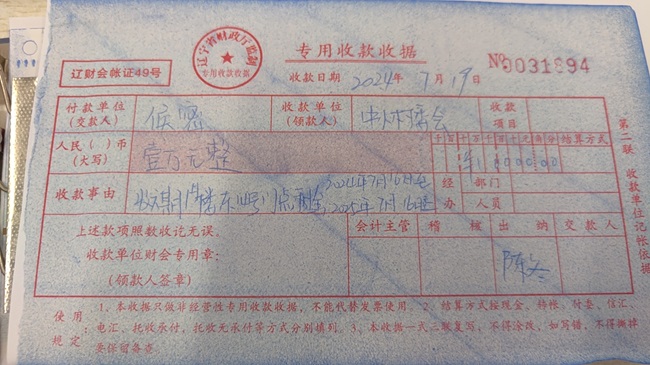 辽宁省财政厅监制
专用收款收据
专用收款收据
№0031694
辽财会帐证49号
收款日期 2024年 7月19日
付款单位
(交款人)
收款单位
(领款人)
收款
项目
人民( )币
(大写)
壹万元整
千 百 十 万 千 百 十 元 角 分
结算方式
¥10000.00
收款事由
2024年7月16日至
2025年7月16日
经 部门
办 人员
上述款项照数收记无误。
收款单位财会专用章:
(领款人签章)
会计主管
稽 核
出 纳
交款人
第二联 收款单位记帐依据
使用规定
1、本收据只做非经营性专用收款收据,不能代替发票使用。2、结算方式按现金、转帐、付委、信汇、
电汇、托收承付、托收无承付等方式分别填列。3、本收据一式三联复写,不得涂改,如写错,不得撕掉
要保留备查。